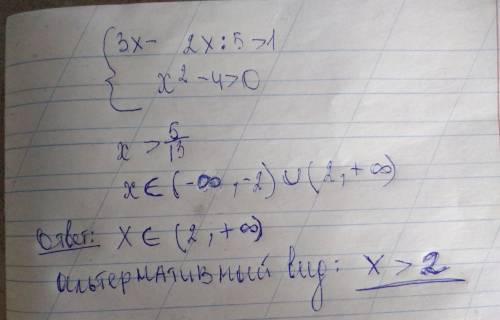 { 3x - 2x:5>1
x² - 4>0
x > 5/13
x ∈ (-∞, -2) ∪ (2, +∞)
Ответ: x ∈ (2, +∞)
альтернативный вид: x > 2